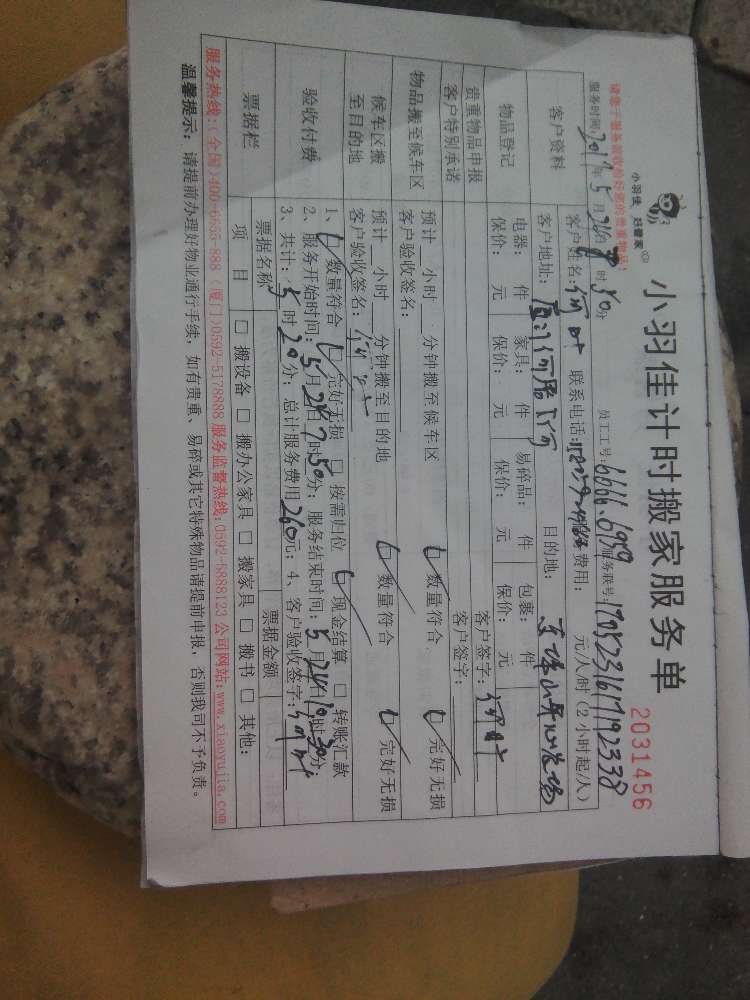 小羽佳 好管家
小羽佳计时搬家服务单
2031456
请您于服务前收检好您的贵重物品!
员工工号:6666.6999 服务联号:
服务时间:2017年5月 日 时 分
客户资料
客户姓名: 联系电话: 费用: 元/人/时(2小时起/人)
客户地址: 目的地:
物品登记
电器: 件 家具: 件 易碎品: 件 包裹: 件
保价: 元 保价: 元 保价: 元 保价: 元
贵重物品申报
客户签字:
客户特别承诺
客户签字:
物品搬至候车区
预计 小时 分钟搬至候车区 数量符合 完好无损
客户验收签名:
候车区搬至目的地
预计 小时 分钟搬至目的地 数量符合 完好无损
客户验收签名:
验收付费
1、 数量符合 完好无损 □ 按需归位 现金结算 □ 转账汇款
2、服务开始时间:5月24日7时50分; 服务结束时间:5月24日 时 分
3、共计:5时20分; 总计服务费用260元; 4、客户验收签字:
票据栏
票据名称 票据金额
项目 □ 搬设备 □ 搬办公家具 □ 搬家具 □ 搬书 □ 其他:
服务热线:(全国)400-6655-888 (厦门)0592-5178888 服务监督热线:0592-5888123 公司网站:www.xiaoyujia.com
温馨提示: 请提前办理好物业通行手续, 如有贵重、易碎或其它特殊物品请提前申报, 否则我司不予负责。